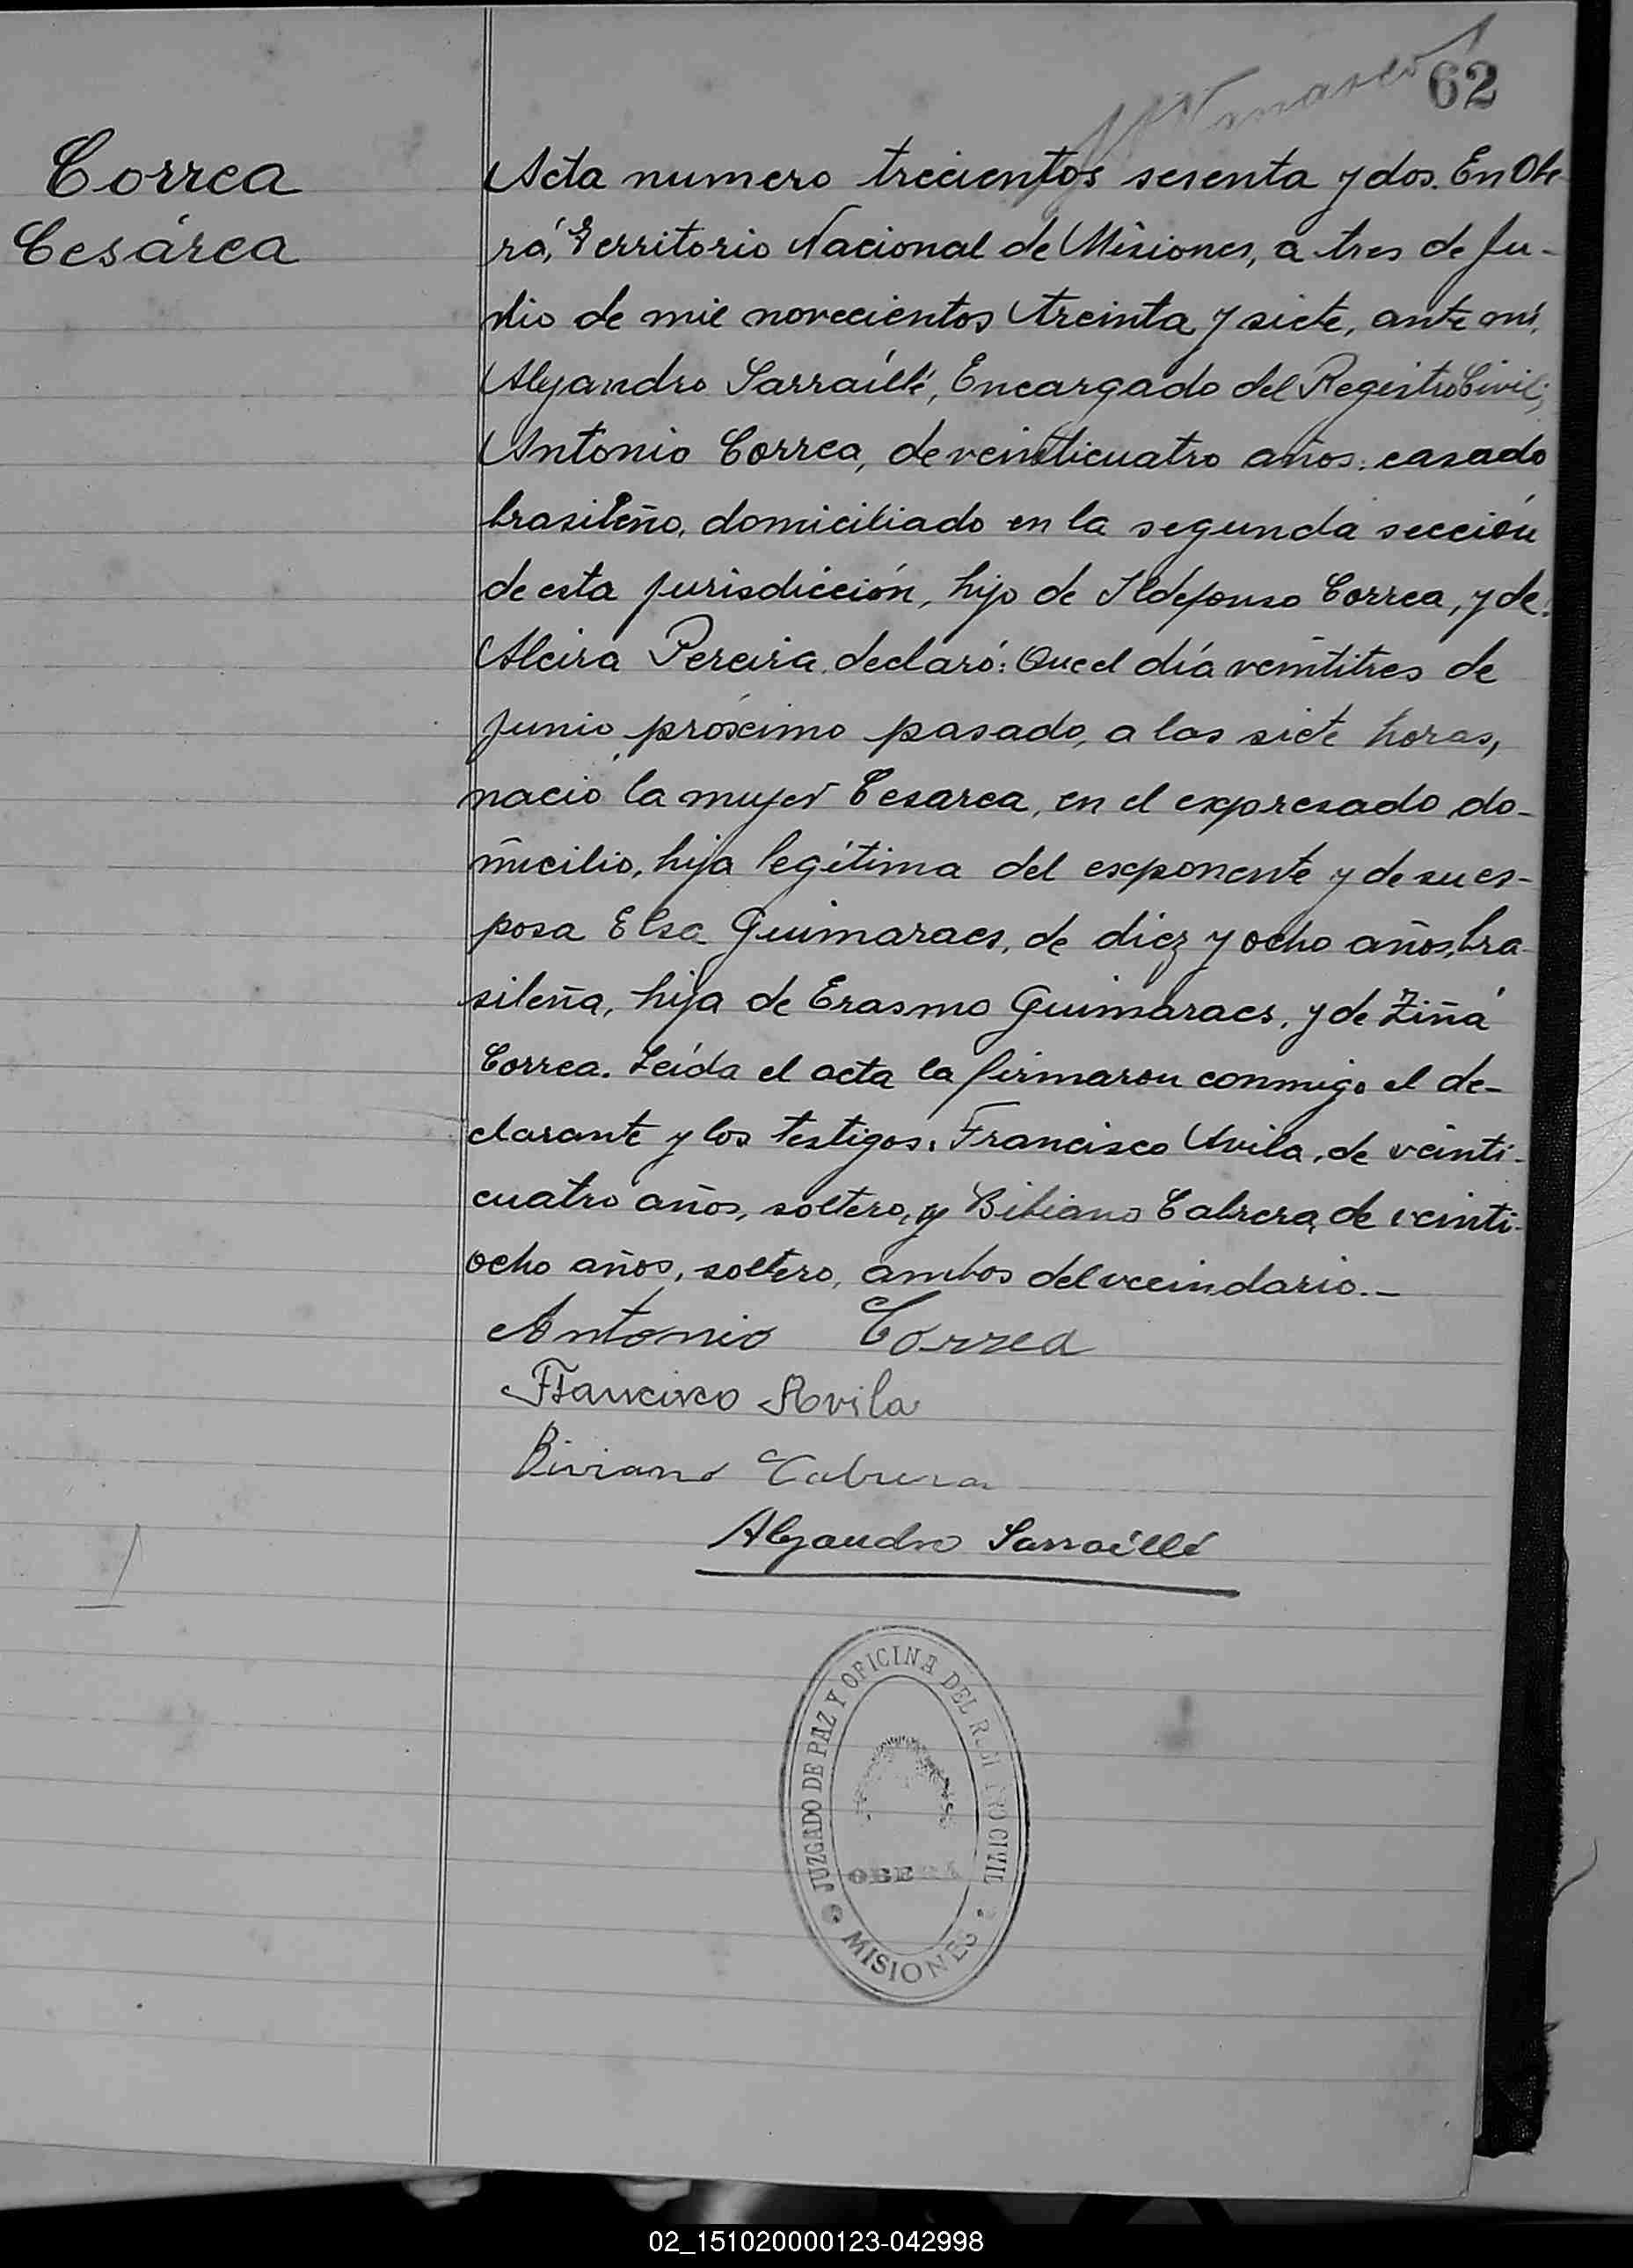 62
Correa
Cesárea
Acta numero trecientos sesenta y dos. En Obe-
rá, Territorio Nacional de Misiones, a tres de Ju-
lio de mil novecientos treinta y siete, ante mí,
Alejandro Sarraillé, Encargado del Registro Civil;
Antonio Correa, de veinticuatro años, casado
brasileño, domiciliado en la segunda sección
de esta jurisdicción, hijo de Ildefonso Correa, y de
Alcira Pereira, declaró: Que el día veintitres de
junio próximo pasado, a las siete horas,
nació la mujer Cesarea, en el expresado do-
micilio, hija legítima del exponente y de su es-
posa Elsa Guimaraes, de diez y ocho años, bra-
sileña, hija de Erasmo Guimaraes, y de Ziñá
Correa. Leída el acta la firmaron conmigo el de-
clarante y los testigos: Francisco Avila, de veinti-
cuatro años, soltero, y Bibiano Cabrera, de veinti-
ocho años, soltero, ambos del vecindario.-
Antonio Correa
Francisco Avila
Biviano Cabrera
Alejandro Sarraillé
JUZGADO DE PAZ Y OFICINA DEL REGISTRO CIVIL
OBERÁ
MISIONES
02_151020000123-042998